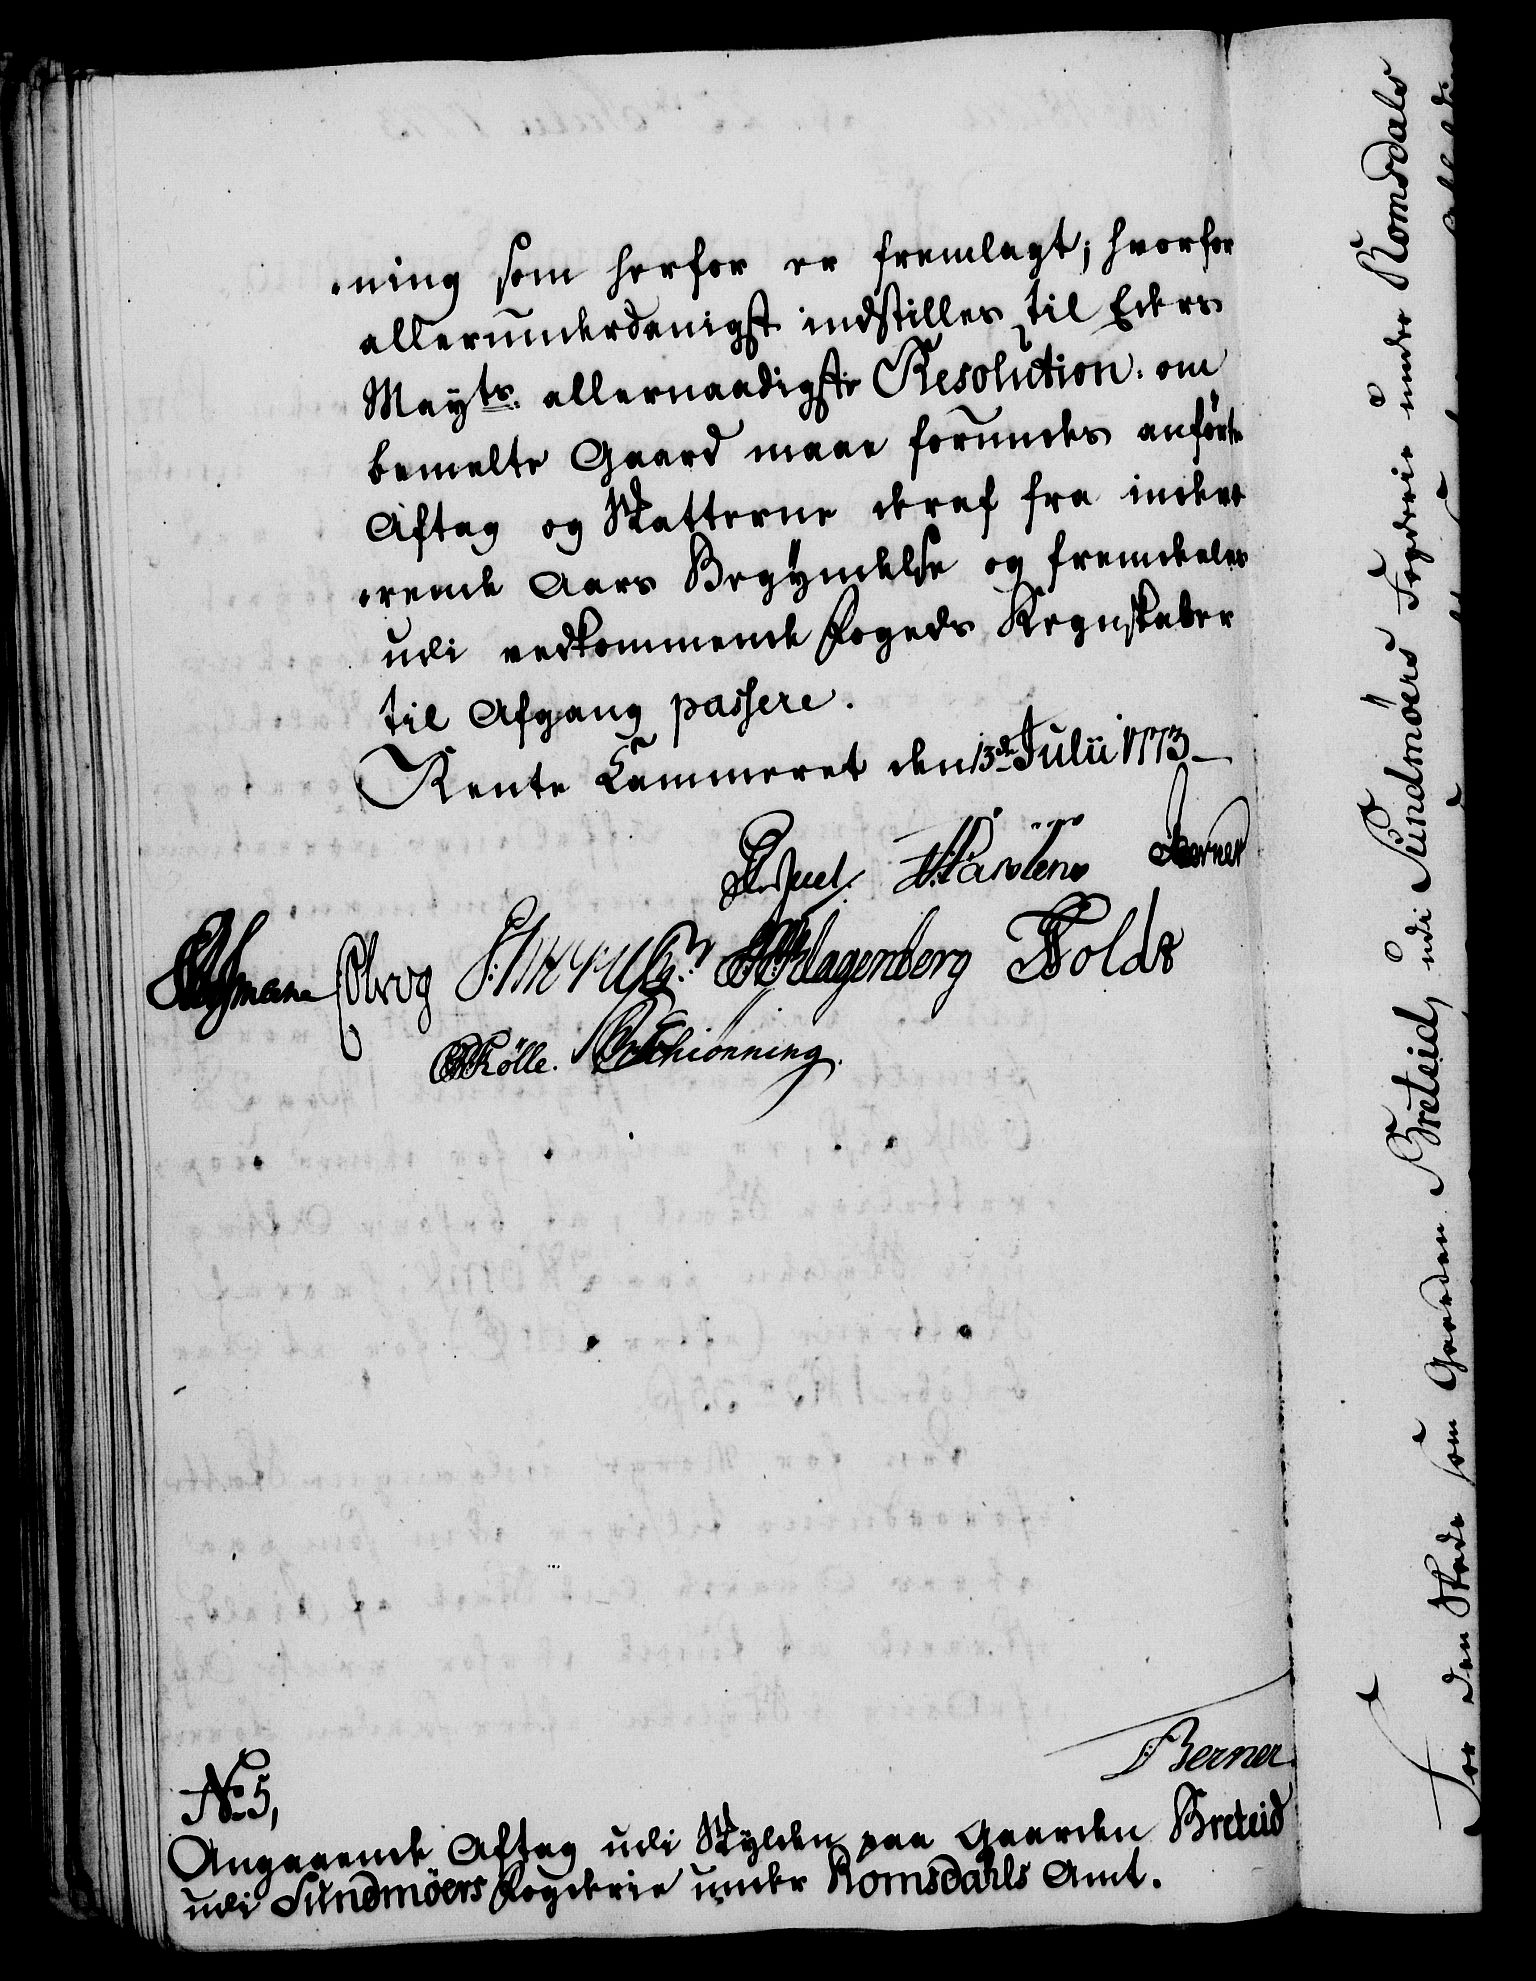 ning som herfor er fremlagt; hvorfor
allerunderdanigst indstilles til Eders
Mayts. allernaadigste Resolution. om
bemelte Gaard maae forundes anførte
Aftag og Skatterne deraf fra inde væ-
rende Aars Begyndelse og fremdeles
udi vedkommende Fogeds Regnskaber
til Afgang passere.
Rente Cammeret den 13de Julii 1773
Juel. Berner
Klagenberg Holdt
Kölle. Schionning.
Berner.
No. 5,
Angaaende Aftag udi Skylden paa Gaarden Breteid
udi Sundmøers Fogderie under Romsdahls Amt.
For den Skade som Gaarden Breteid, udi Sundmøers Fogderie under Romsdals